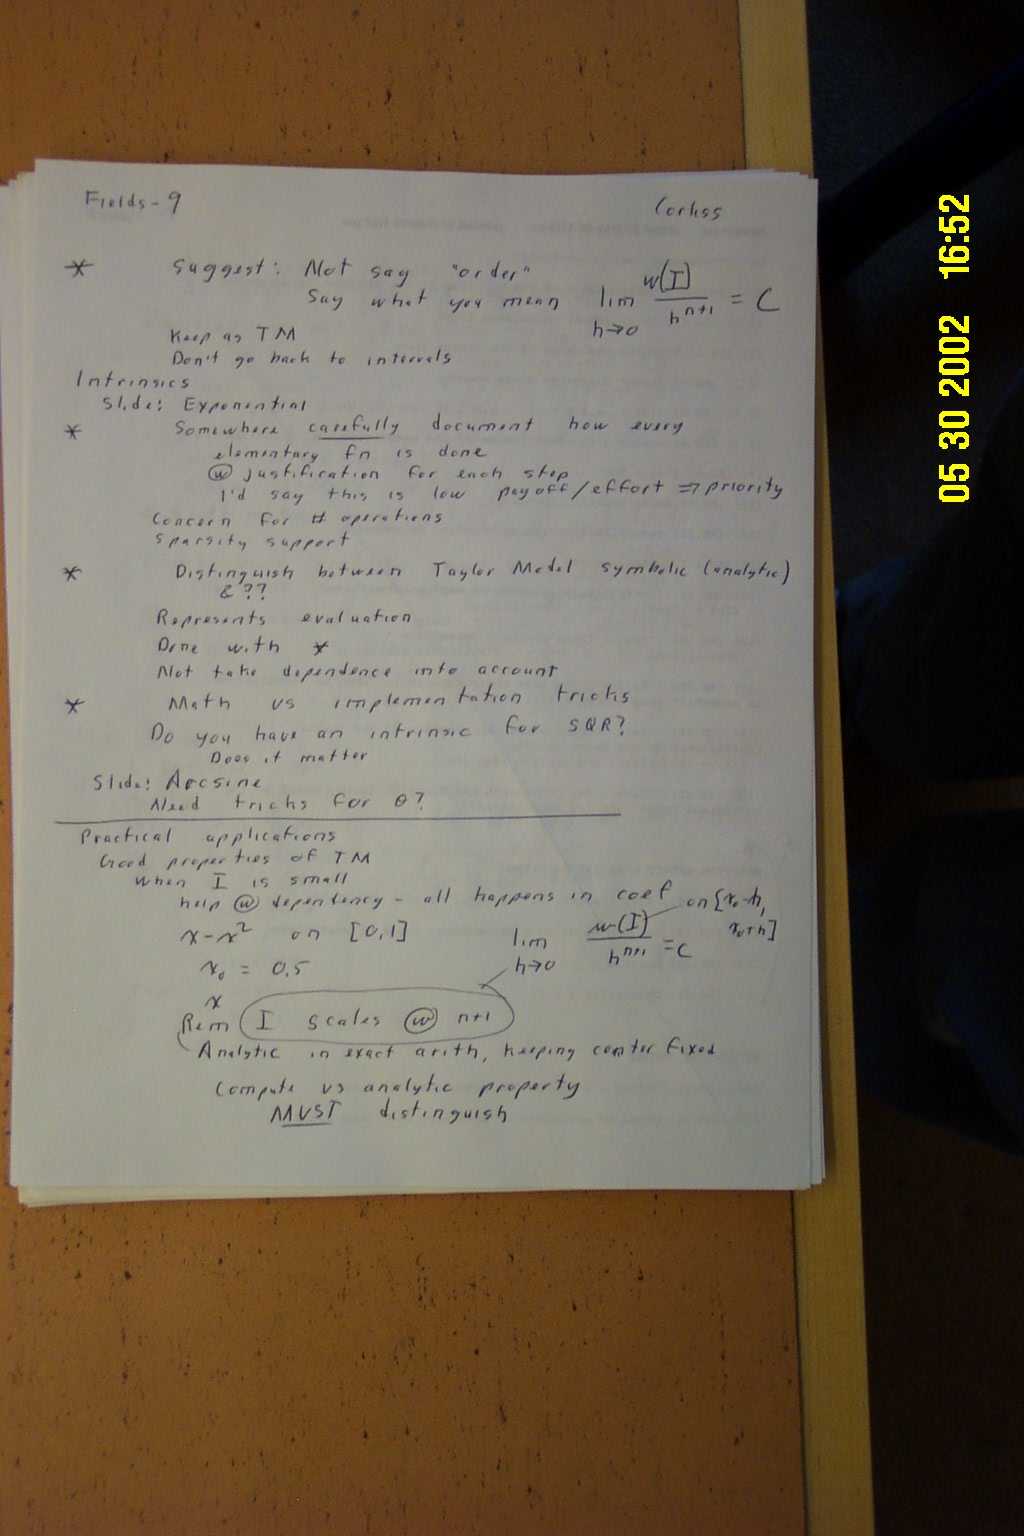 Fields - 9 Corliss
* Suggest: Not say "order"
Say what you mean lim h→0 w(I) / h^(n+1) = C
Keep as TM
Don't go back to intervals
Intrinsics
Slide: Exponential
* Somewhere carefully document how every
elementary fn is done
ⓦ justification for each step
I'd say this is low payoff/effort ⇒ priority
Concern for # operations
Sparsity support
* Distinguish between Taylor Model symbolic (analytic)
& ??
Represents evaluation
Done with *
Not take dependence into account
* Math vs implementation tricks
Do you have an intrinsic for SQR?
Does it matter
Slide: Arcsine
Need tricks for θ?
Practical applications
Good properties of TM
When I is small
help ⓦ dependency - all happens in coef
on [x₀-h, x₀+h]
x-x² on [0,1] lim h→0 w(I) / h^(n+1) = C
x₀ = 0.5
x
Rem I scales ⓦ n+1
Analytic in exact arith, keeping center fixed
Compute vs analytic property
MUST distinguish
05 30 2002 16:52